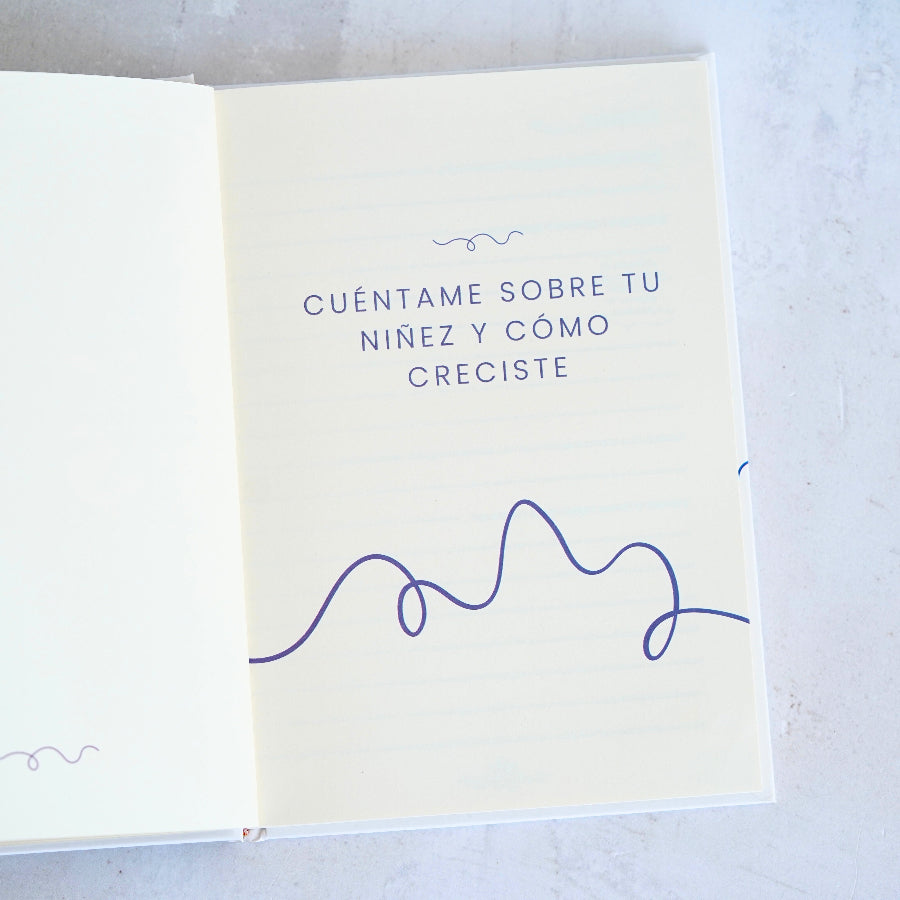 CUÉNTAME SOBRE TU
NIÑEZ Y CÓMO
CRECISTE